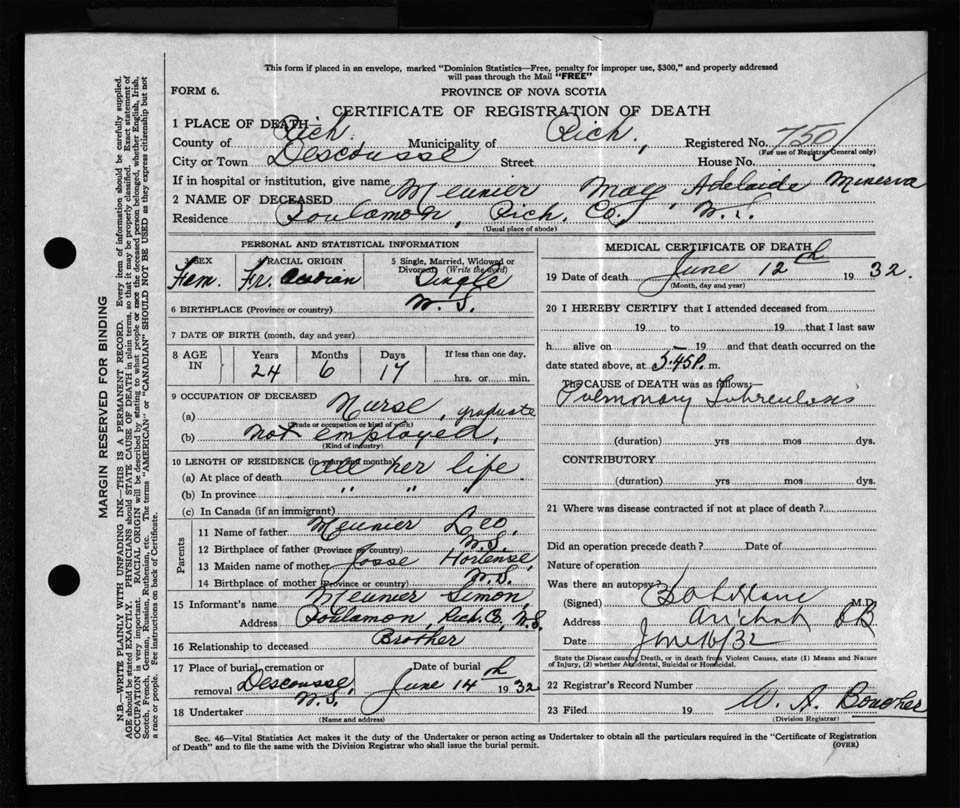 This form if placed in an envelope, marked "Dominion Statistics—Free, penalty for improper use, $300," and properly addressed
will pass through the Mail "FREE"
FORM 6.
PROVINCE OF NOVA SCOTIA
CERTIFICATE OF REGISTRATION OF DEATH
1 PLACE OF DEATH
County of Rich. Municipality of Rich, Registered No. 750
(For use of Registrar General only)
City or Town Descousse Street House No.
If in hospital or institution, give name
2 NAME OF DECEASED Meunier Mary Adelaide Minerva
Residence Poulamon, Rich. Co., N.S.
(Usual place of abode)
PERSONAL AND STATISTICAL INFORMATION
3 SEX Fem.
4 RACIAL ORIGIN Fr. Acadian
5 Single, Married, Widowed or
Divorced (Write the word)
Single
6 BIRTHPLACE (Province or country) N.S.
7 DATE OF BIRTH (month, day and year)
8 AGE IN Years Months Days If less than one day,
24 6 17 hrs. or min.
9 OCCUPATION OF DECEASED
(a) Nurse, graduate
(Trade or occupation or kind of work)
(b) not employed,
(Kind of industry)
10 LENGTH OF RESIDENCE (in years and months)
(a) At place of death all her life
(b) In province " " "
(c) In Canada (if an immigrant)
Parents
11 Name of father Meunier Leo,
12 Birthplace of father (Province or country) N.S.
13 Maiden name of mother Josse Hortense,
14 Birthplace of mother (Province or country) N.S.
15 Informant's name Meunier Simon,
Address Poulamon, Rich. Co., N.S.
16 Relationship to deceased Brother
17 Place of burial, cremation or
removal Descousse, N.S.
Date of burial
June 14th 1932
18 Undertaker
(Name and address)
MEDICAL CERTIFICATE OF DEATH
19 Date of death June 12th 1932.
(Month, day and year)
20 I HEREBY CERTIFY that I attended deceased from
19 to 19 that I last saw
h alive on 19 and that death occurred on the
date stated above, at 5.45P. m.
The CAUSE of DEATH was as follows:
Pulmonary Tuberculosis
(duration) yrs mos dys.
CONTRIBUTORY
(duration) yrs mos dys.
21 Where was disease contracted if not at place of death?
Did an operation precede death? Date of
Nature of operation
Was there an autopsy
(Signed) M.D.
Address Arichat CB
Date June 16/32
State the Disease causing Death, or in death from Violent Causes, state (1) Means and Nature
of Injury, (2) whether Accidental, Suicidal or Homicidal.
22 Registrar's Record Number
23 Filed 19 W. A.
(Division Registrar)
Sec. 46—Vital Statistics Act makes it the duty of the Undertaker or person acting as Undertaker to obtain all the particulars required in the "Certificate of Registration
of Death" and to file the same with the Division Registrar who shall issue the burial permit.
(OVER)
MARGIN RESERVED FOR BINDING
N.B.—WRITE PLAINLY WITH UNFADING INK—THIS IS A PERMANENT RECORD. Every item of information should be carefully supplied.
AGE should be stated EXACTLY. PHYSICIANS should STATE CAUSE OF DEATH in plain terms, so that it may be properly classified. Exact statement of
OCCUPATION is very important. RACIAL ORIGIN will be described by stating to what people or race the deceased person belonged, whether English, Irish,
Scotch, French, German, Russian, Ruthenian, etc. The terms "AMERICAN" or "CANADIAN" SHOULD NOT BE USED as they express citizenship but not
a race or people. See instructions on back of Certificate.